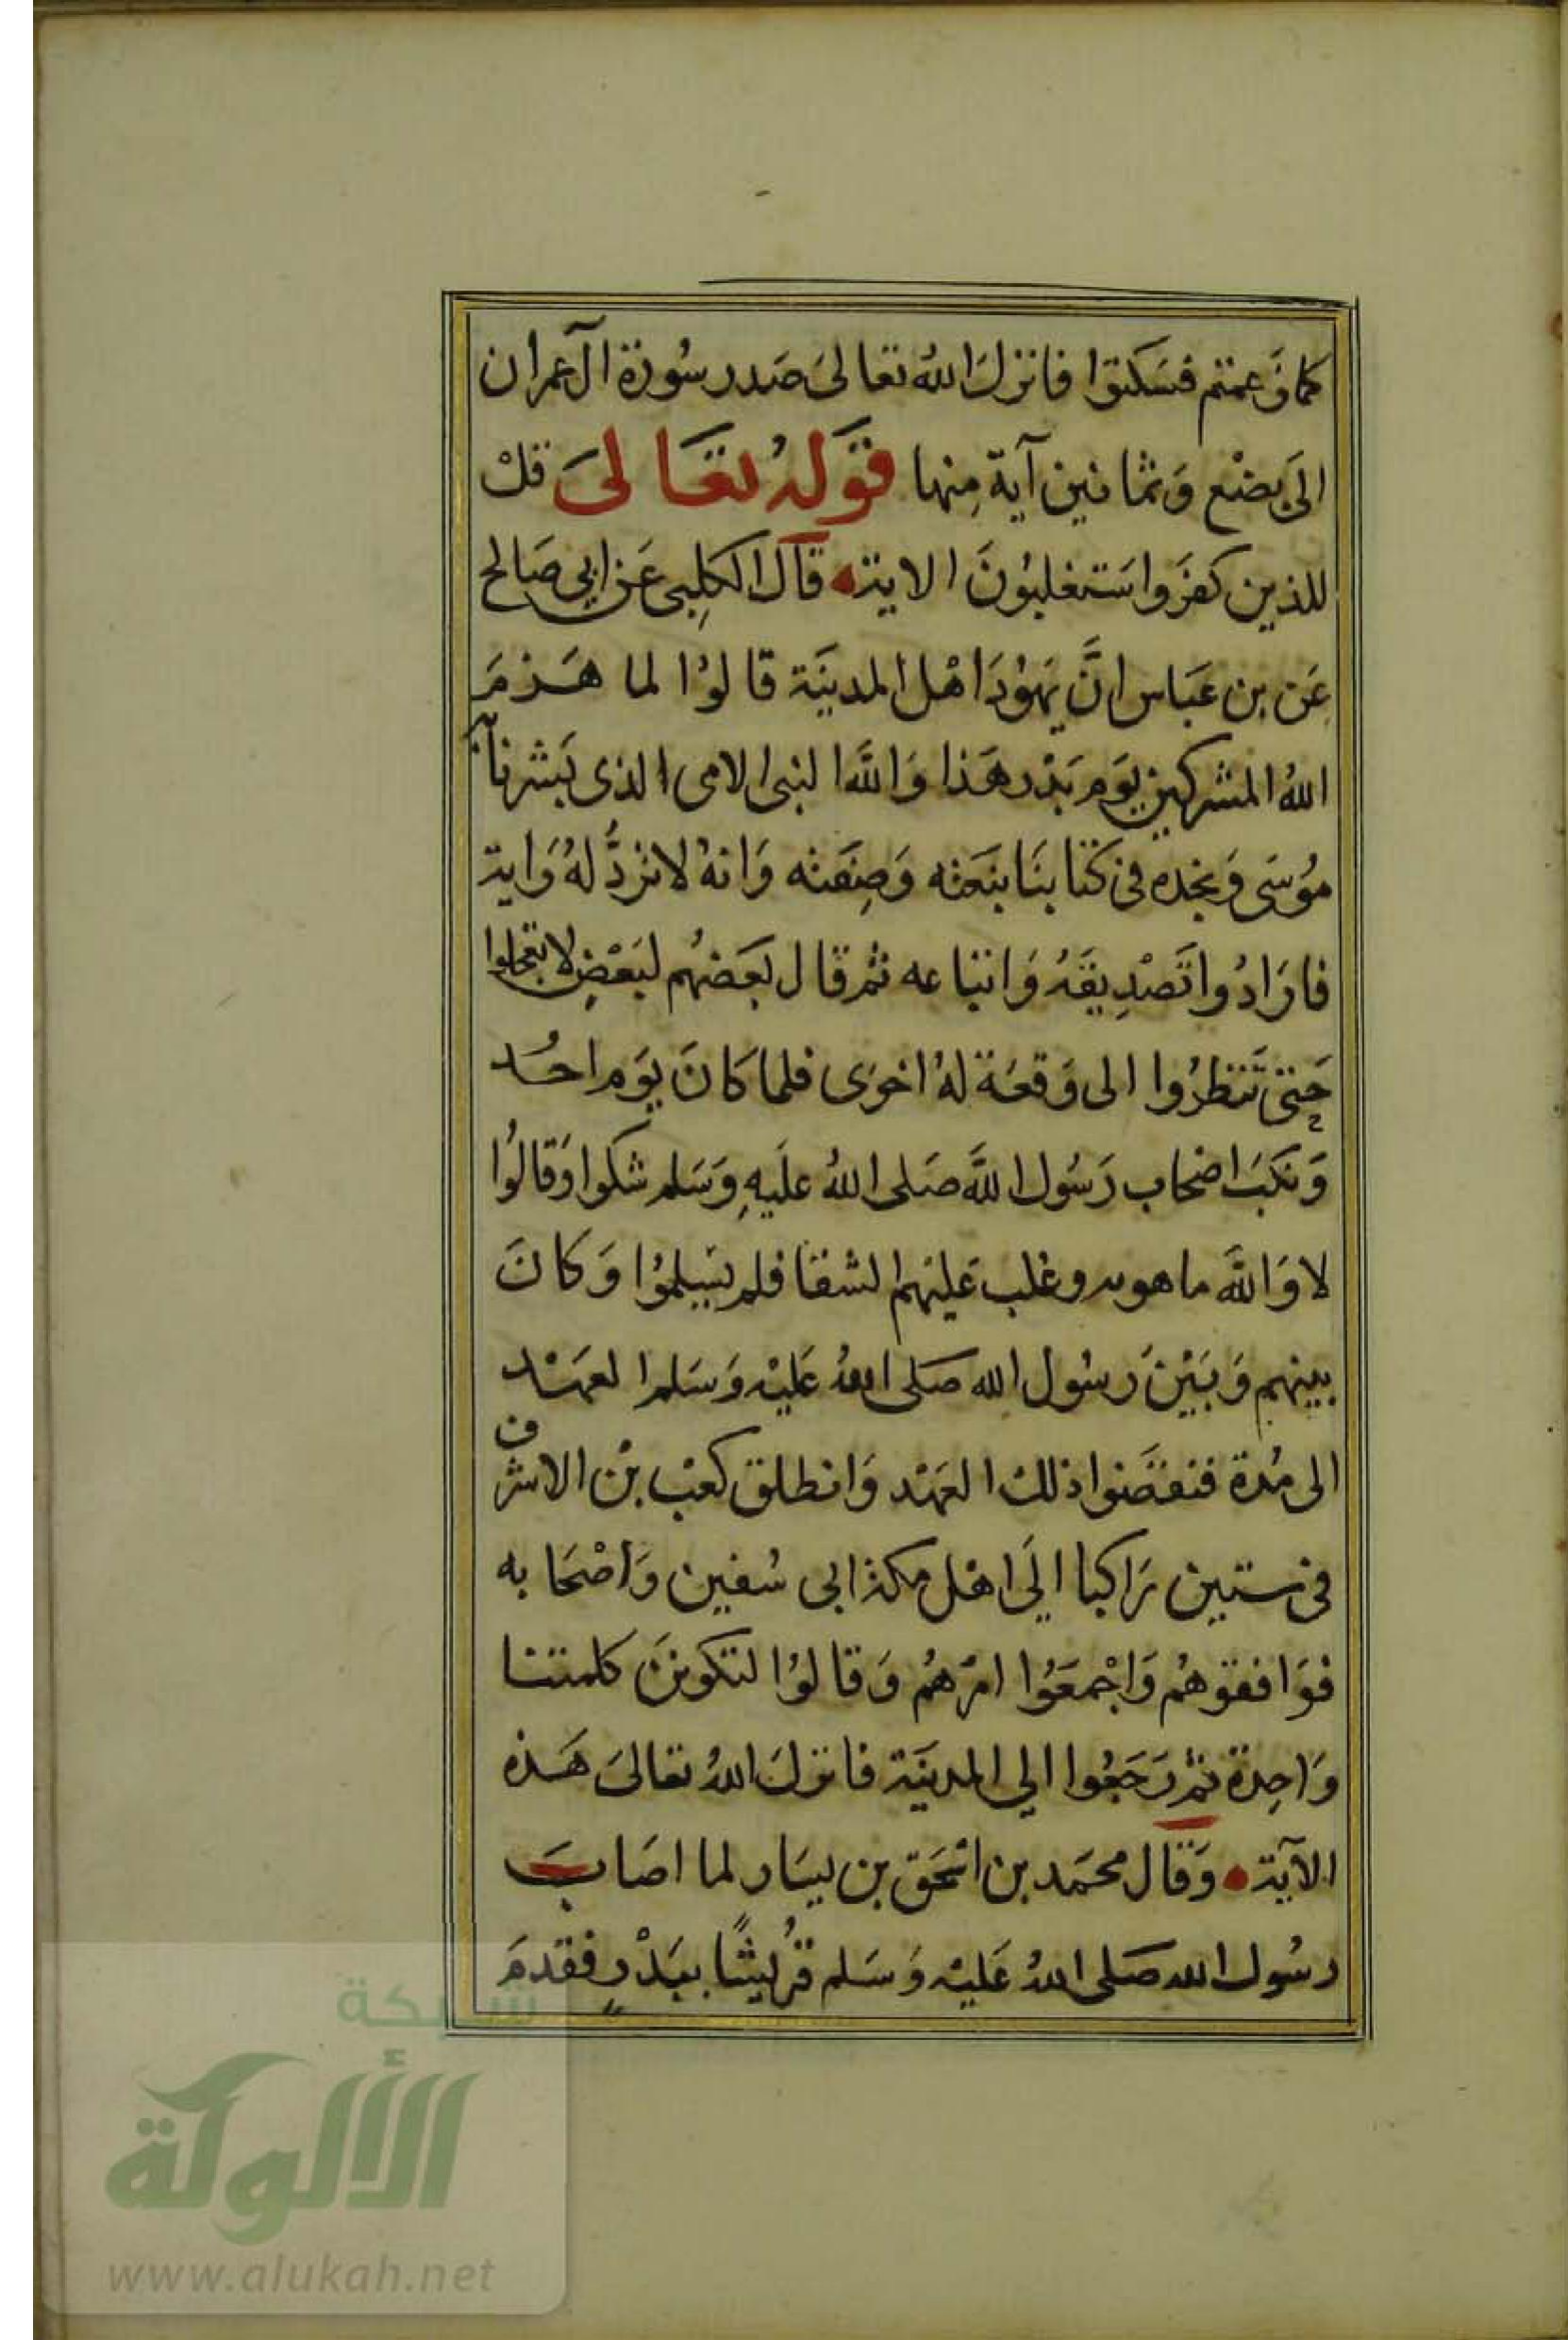 كما زعمتم فسكتوا فانزل الله تعالى صدر سورة آل عمران
الى بضع وثمانين آية منها قوله تعالى قل
للذين كفروا ستغلبون الاية قال الكلبى عن ابي صالح
عن بن عباس ان يهود اهل المدينة قالوا لما هزم
الله المشركين يوم بدر هذا والله النبى الامى الذى بشرنا به
موسى ونجده فى كتابنا بنعته وصفته وانه لا تردّ له راية
فارادوا تصديقه واتباعه ثم قال بعضهم لبعض لا تعجلوا
حتى تنظروا الى وقعة له اخرى فلما كان يوم احد
ونكب اصحاب رسول الله صلى الله عليه وسلم شكوا وقالوا
لا والله ما هو به وغلب عليهم الشقا فلم يسلموا وكان
بينهم وبين رسول الله صلى الله عليه وسلم العهد
الى مدة فنقضوا ذلك العهد وانطلق كعب بن الاشرف
فى ستين راكبا الى اهل مكة ابى سفين واصحابه
فوافقوهم واجمعوا امرهم وقالوا لتكونن كلمتنا
واحدة ثم رجعوا الي المدينة فانزل الله تعالى هذه
الآية وقال محمد بن اسحق بن يسار لما اصاب
رسول الله صلى الله عليه وسلم قريشًا ببدرٍ فقدم
شبكة
الألوكة
www.alukah.net